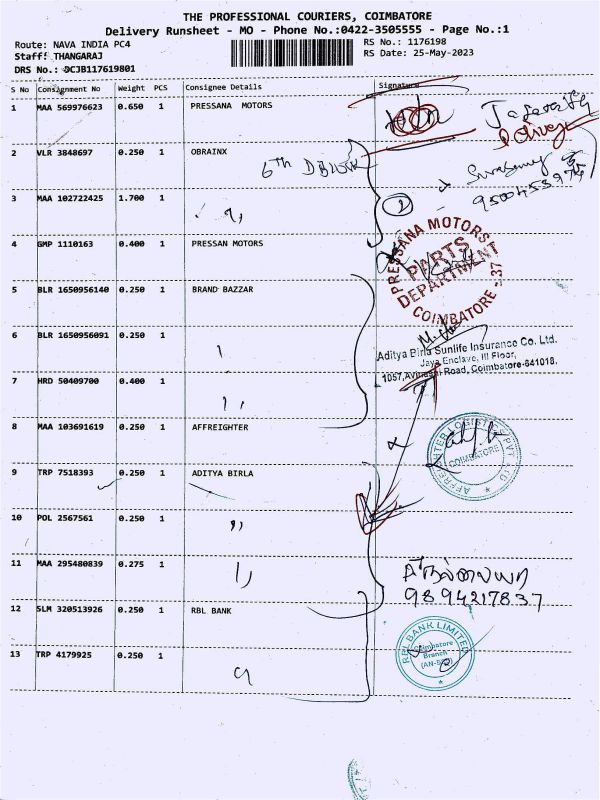 THE PROFESSIONAL COURIERS, COIMBATORE
Delivery Runsheet - MO - Phone No.:0422-3505555 - Page No.:1
Route: NAVA INDIA PC4
RS No.: 1176198
Staff: THANGARAJ
RS Date: 25-May-2023
DRS No.: DCJB117619801
S No Consignment No Weight PCS Consignee Details Signature
1 MAA 569976623 0.650 1 PRESSANA MOTORS
2 VLR 3848697 0.250 1 OBRAINX
6th D Block
9500453974
3 MAA 102722425 1.700 1 "
4 GMP 1110163 0.400 1 PRESSAN MOTORS
PRESSANA MOTORS
PARTS
DEPARTMENT
COIMBATORE - 37
5 BLR 1650956140 0.250 1 BRAND BAZZAR
6 BLR 1650956091 0.250 1
Aditya Birla Sunlife Insurance Co. Ltd.
Jaya Enclave, III Floor,
1057,Avinashi Road, Coimbatore-641018.
7 HRD 50409700 0.400 1 "
8 MAA 103691619 0.250 1 AFFREIGHTER
AFFREIGHTER LOGISTICS PVT LTD
COIMBATORE
9 TRP 7518393 0.250 1 ADITYA BIRLA
10 POL 2567561 0.250 1 "
11 MAA 295480839 0.275 1 "
9894217837
12 SLM 320513926 0.250 1 RBL BANK
RBL BANK LIMITED
Coimbatore
Branch
13 TRP 4179925 0.250 1 "